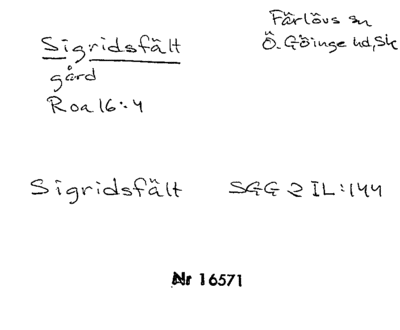 Färlövs sn
Sigridsfält
Ö. Göinge hd, Sk
gård
Roa 16:4
Sigridsfält SGG 2 IL:144
Nr 16571